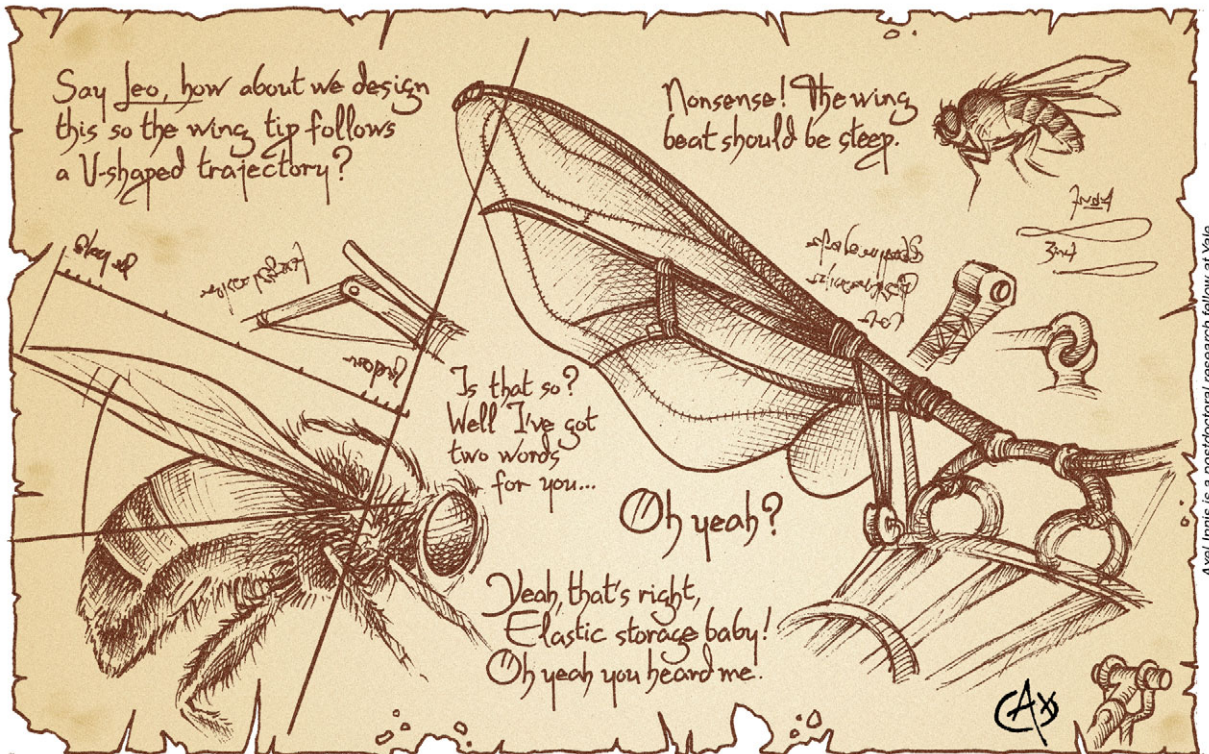 Say Leo, how about we design
this so the wing tip follows
a U-shaped trajectory?
Nonsense! The wing
beat should be steep.
Is that so?
Well I've got
two words
for you...
Oh yeah?
Yeah, that's right,
Elastic storage baby!
Oh yeah you heard me.
CAx
Axel Innis is a postdoctoral research fellow at Yale